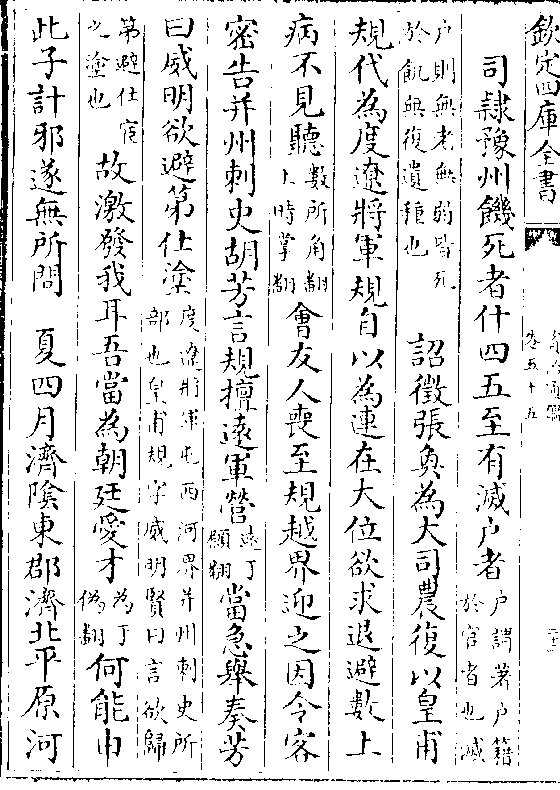 欽定四庫全書
卷五十五
司隷豫州饑死者什四五至有滅户者户謂著户籍於官者也滅
户則無老無弱皆死於飢無復遺種也詔徵張奐為大司農復以皇甫
規代為度遼將軍規自以為連在大位欲求退避數上
病不見聽數所角翻上時掌翻會友人喪至規越界迎之因令客
密告并州刺史胡芳言規擅逺軍營逺于願翻當急舉奏芳
曰威明欲避第仕塗度遼將軍屯西河界并州刺史所部也皇甫規字威明賢曰言欲歸
第避仕宦之塗也故激發我耳吾當為朝廷愛才為于偽翻何能申
此子計邪遂無所問　夏四月濟隂東郡濟北平原河